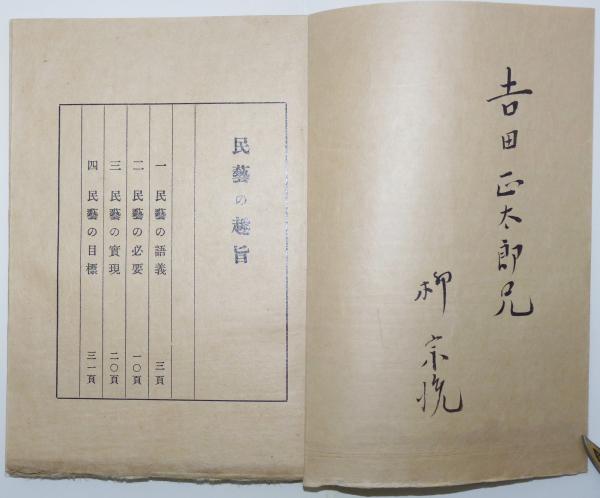 吉田正太郎兄
柳宗悦
民藝の趣旨
一 民藝の語義 三頁
二 民藝の必要 一〇頁
三 民藝の實現 二〇頁
四 民藝の目標 三一頁